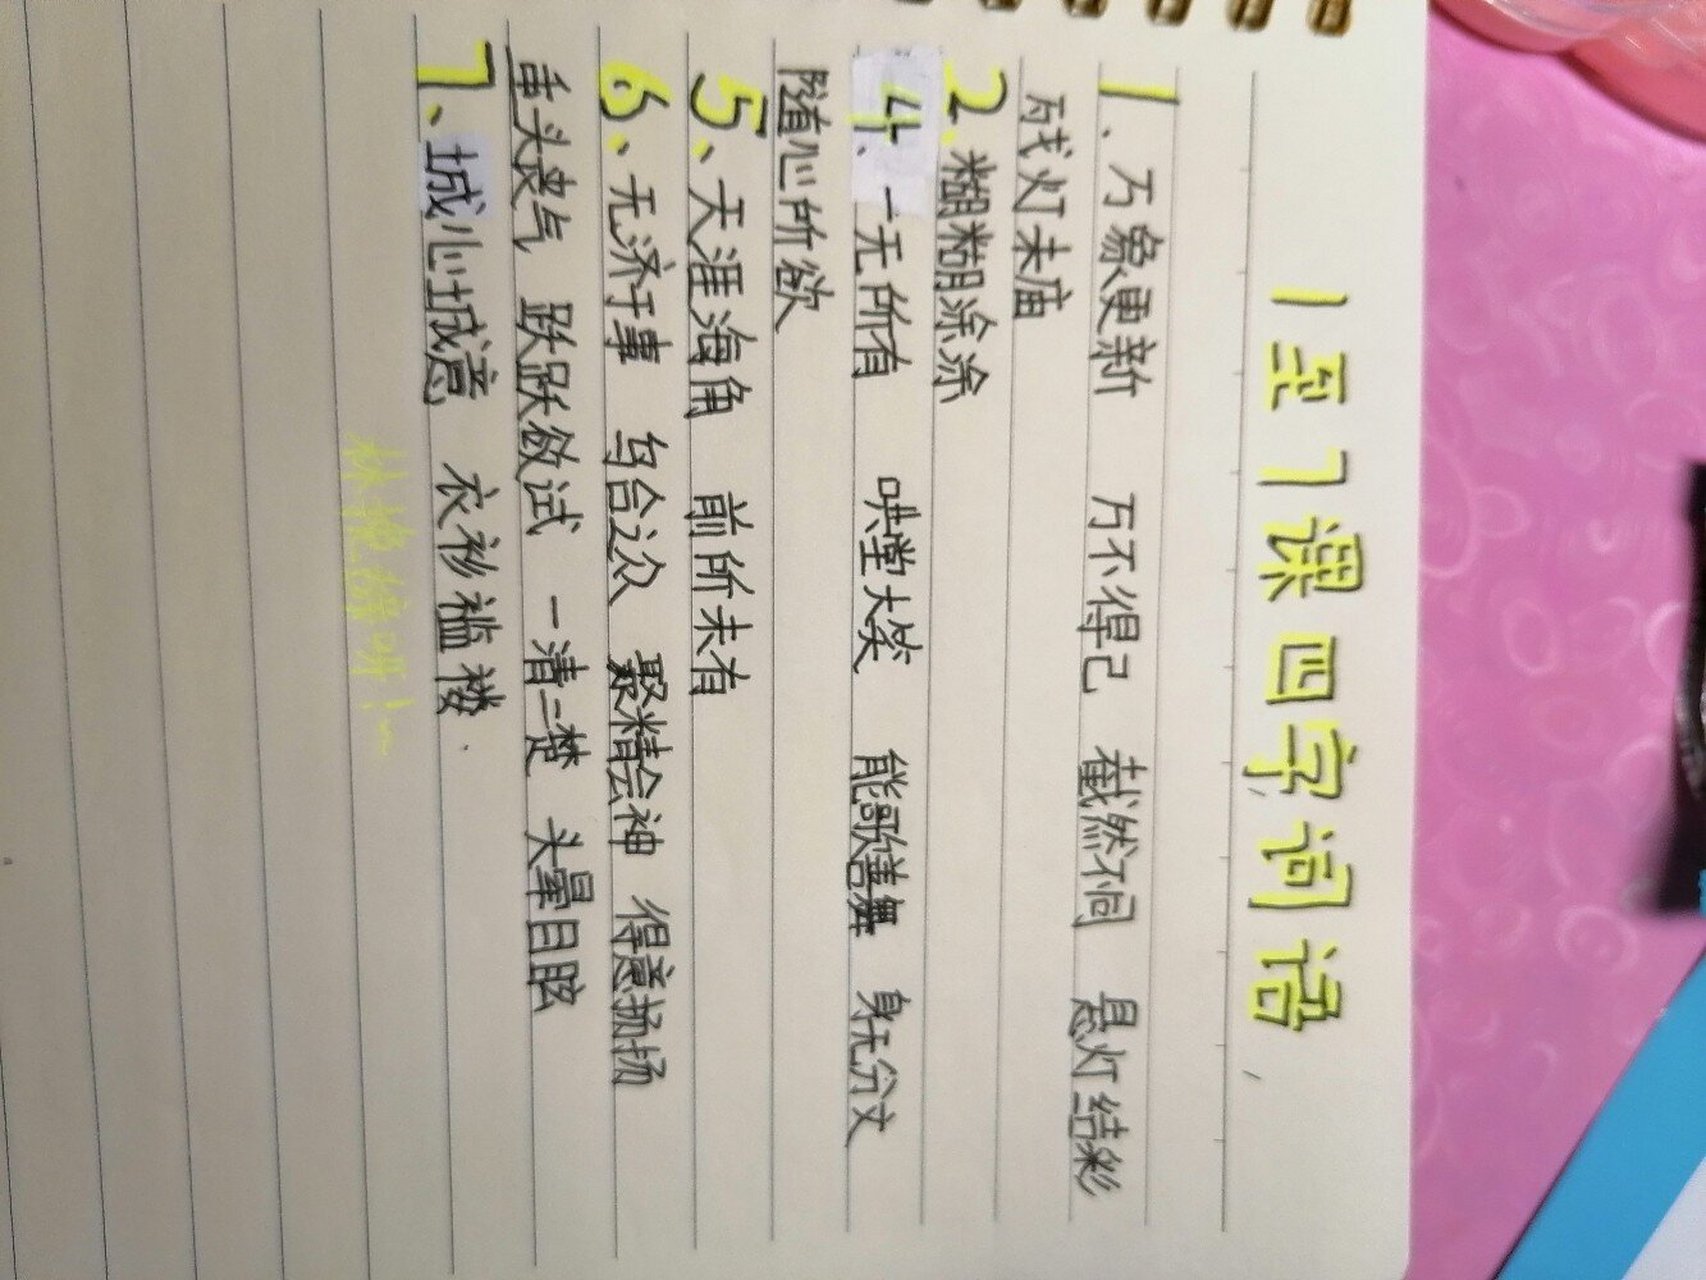 1至7课四字词语
1、万象更新 万不得已 截然不同 悬灯结彩
残灯末庙
2、糊糊涂涂
4、一无所有 哄堂大笑 能歌善舞 身无分文
随心所欲
5、天涯海角 前所未有
6、无济于事 乌合之众 聚精会神 得意扬扬
垂头丧气 跃跃欲试 一清二楚 头晕目眩
7、诚心诚意 衣衫褴褛.